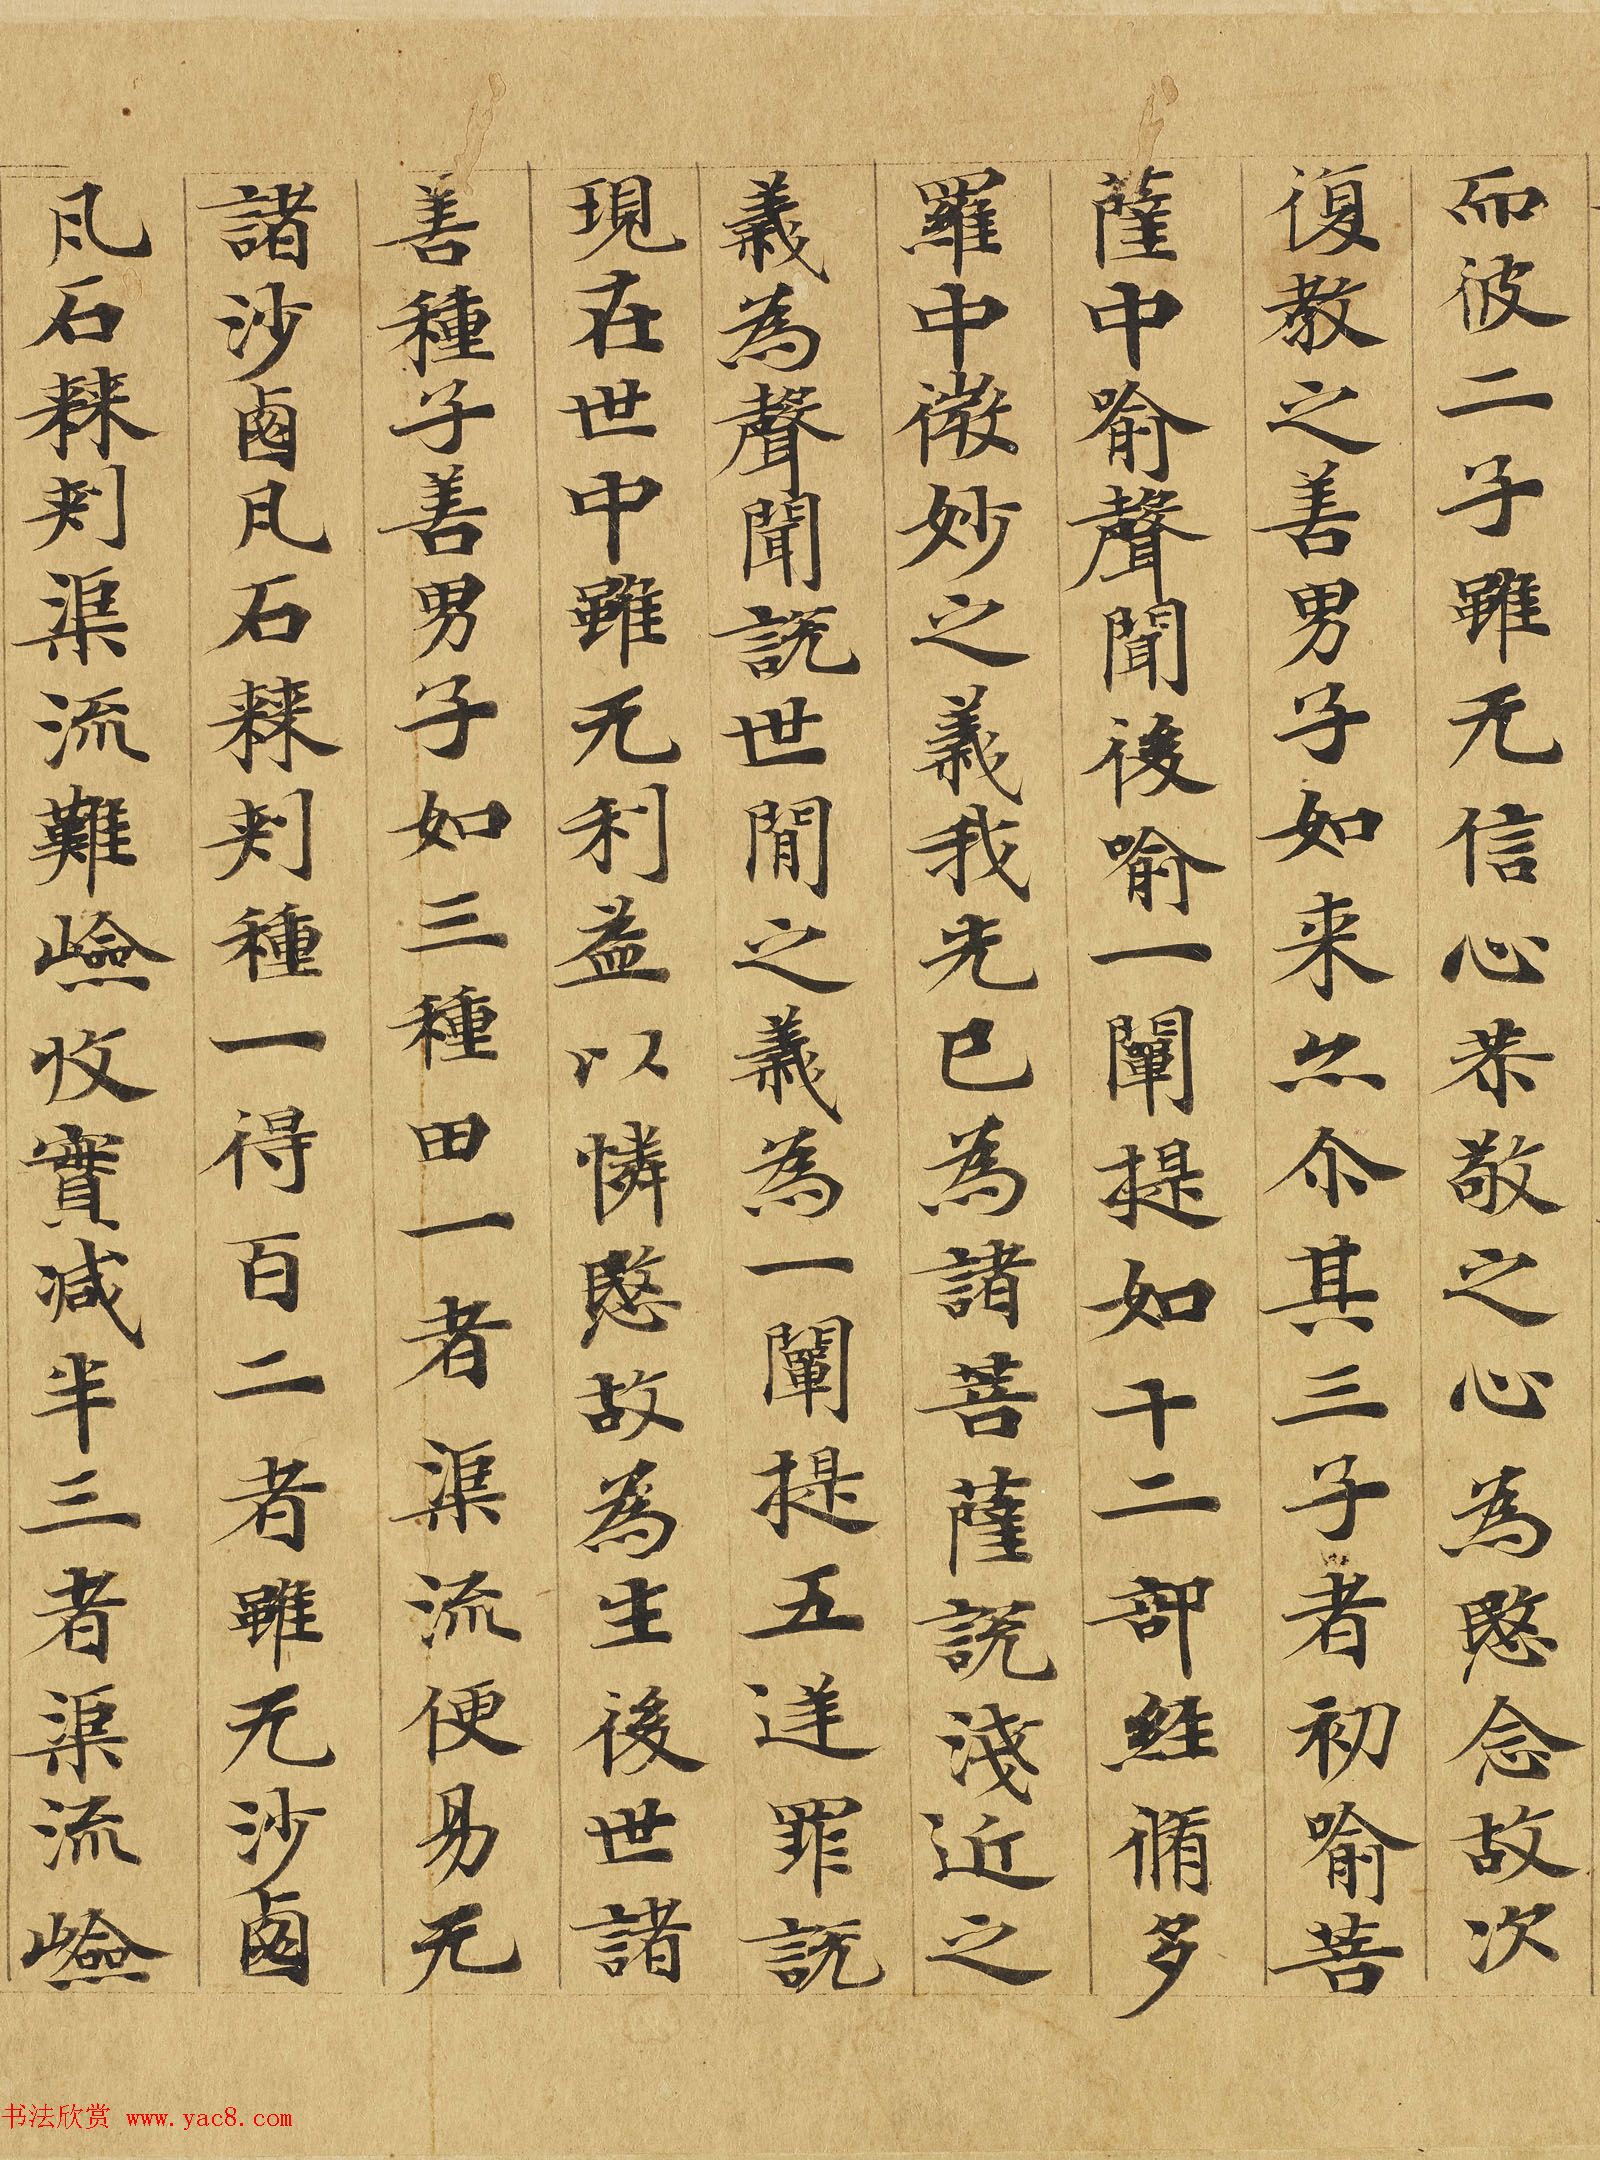 而彼二子雖无信心恭敬之心為愍念故次
復教之善男子如来亦尒其三子者初喻菩
薩中喻聲聞後喻一闡提如十二部經脩多
羅中微妙之義我先已為諸菩薩說淺近之
義為聲聞說世間之義為一闡提五逆罪說
現在世中雖无利益以憐愍故為生後世諸
善種子善男子如三種田一者渠流便易无
諸沙鹵凡石棘刾種一得百二者雖无沙鹵
凡石棘刾渠流難嶮收實減半三者渠流嶮
书法欣赏 www.yac8.com